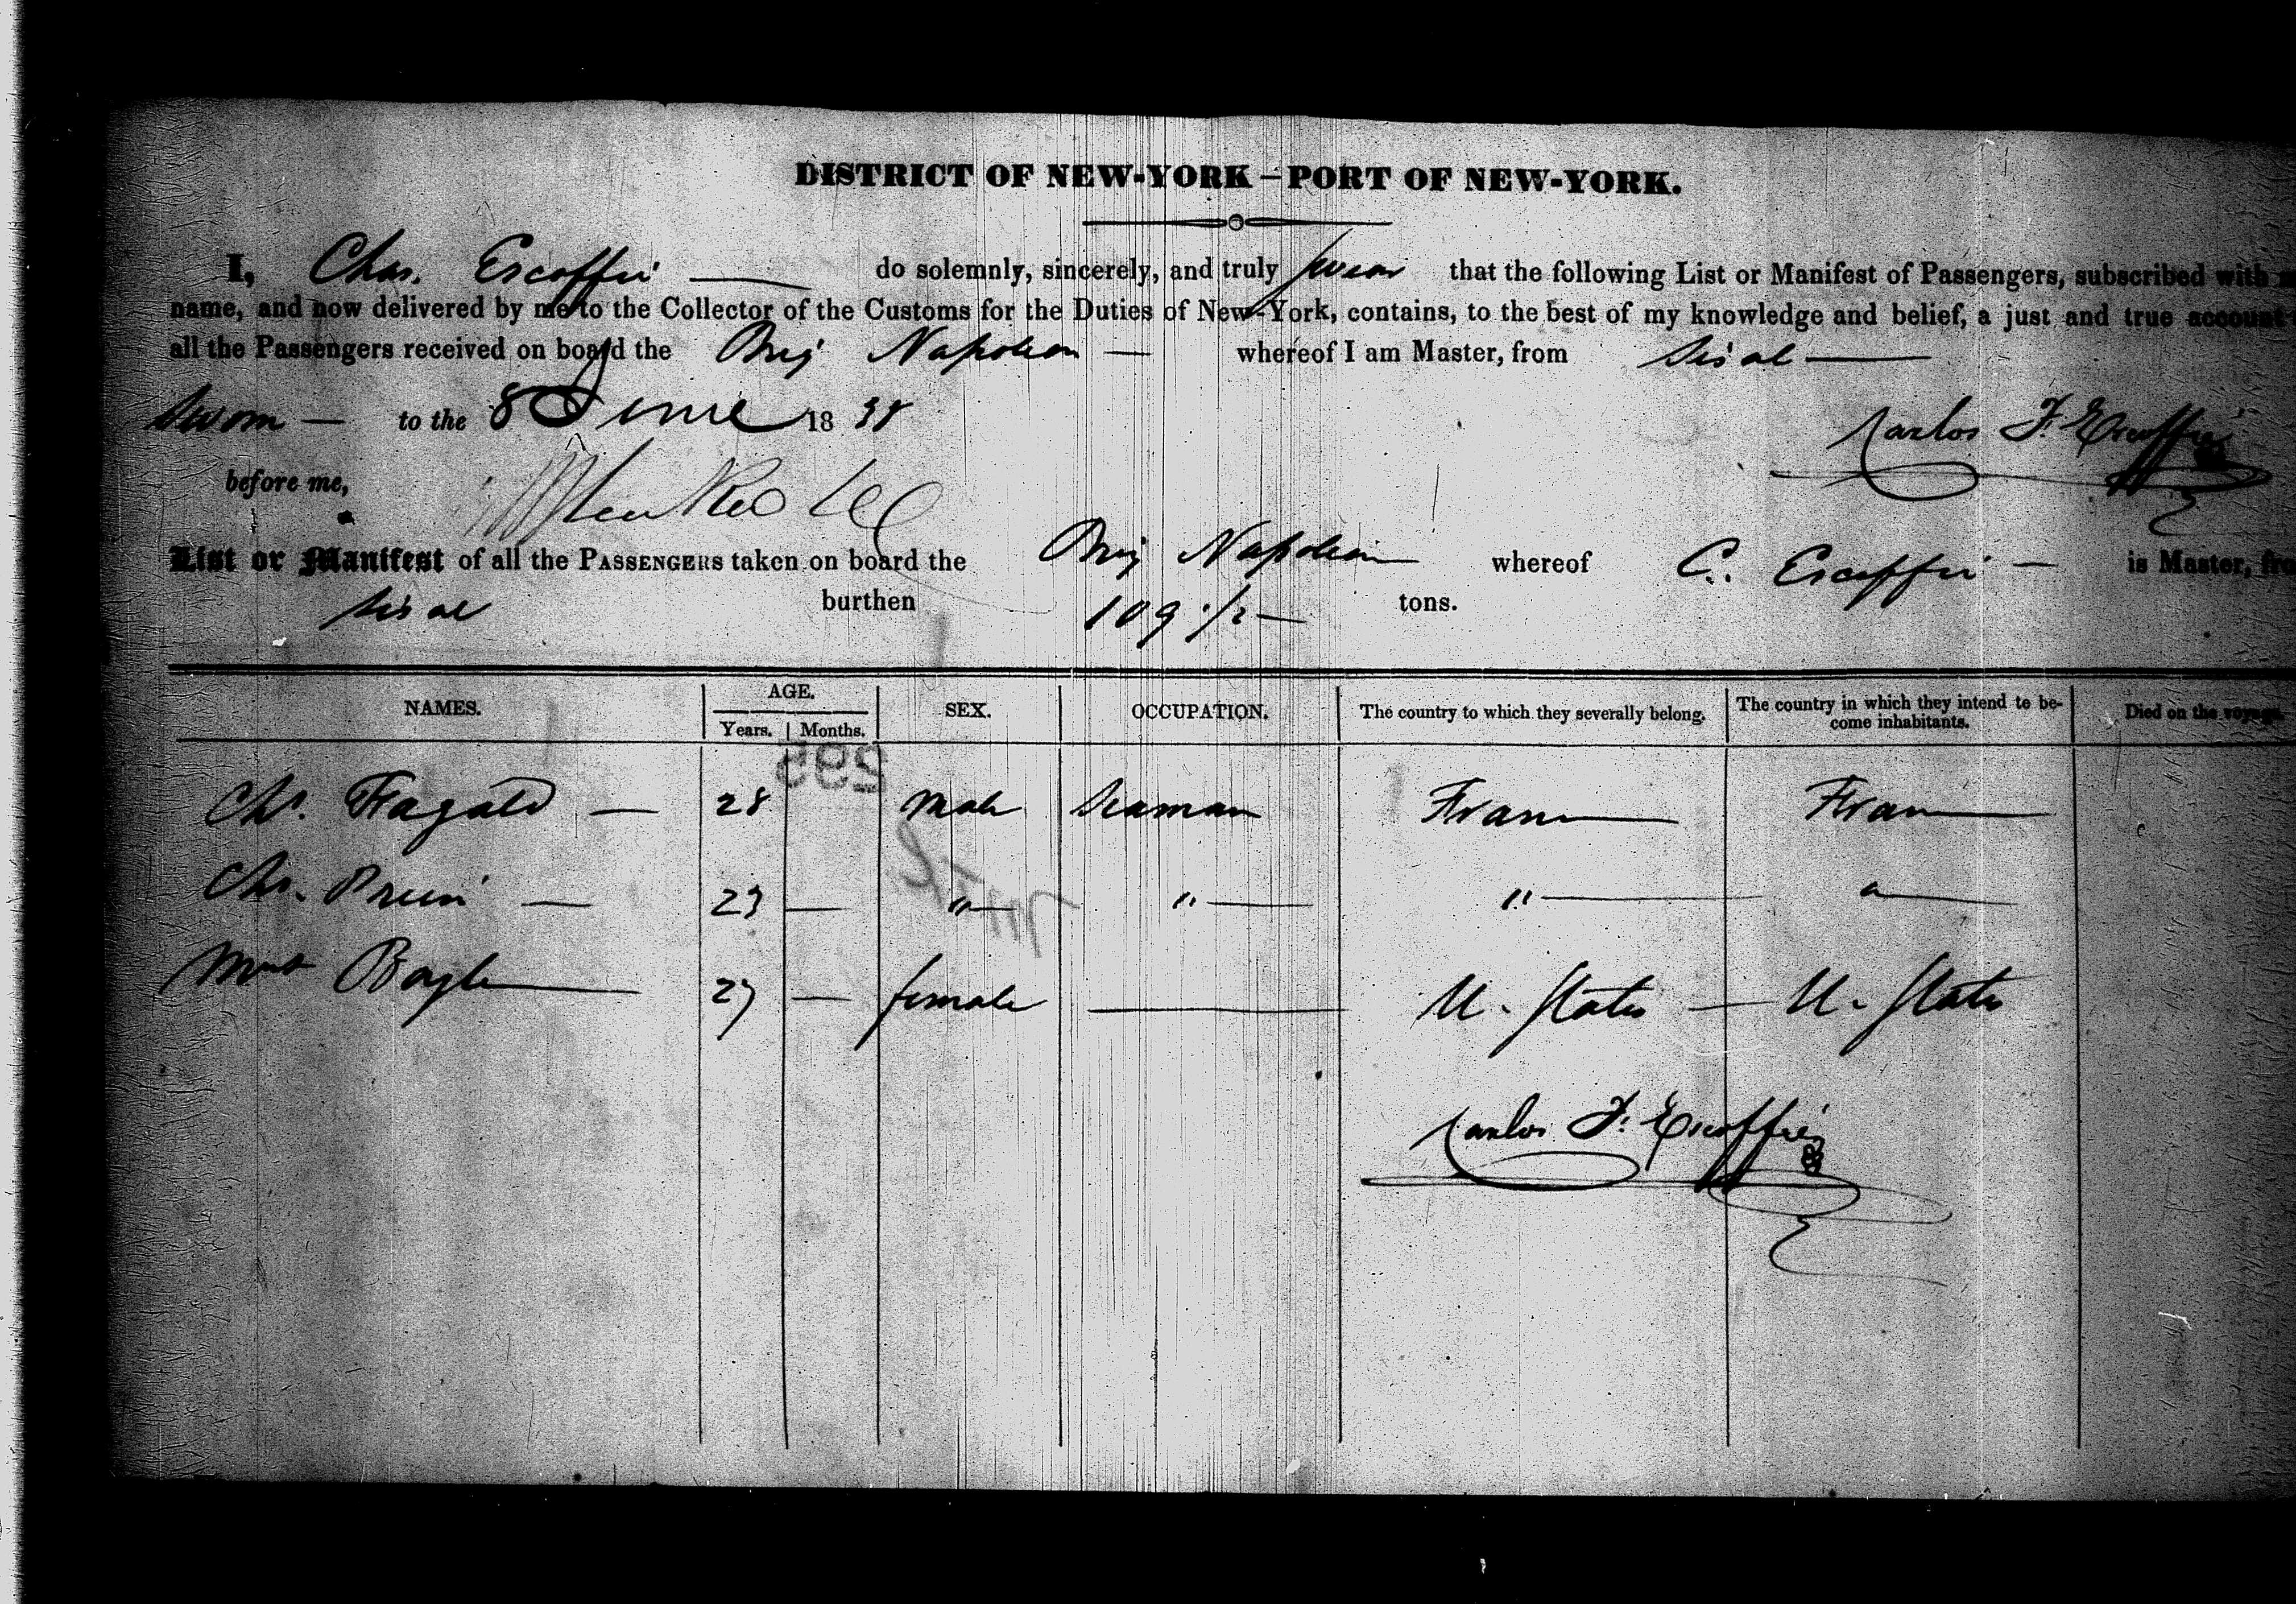 DISTRICT OF NEW-YORK—PORT OF NEW-YORK.
I, Chas. Escoffié do solemnly, sincerely, and truly swear that the following List or Manifest of Passengers, subscribed with
name, and now delivered by me to the Collector of the Customs for the Duties of New-York, contains, to the best of my knowledge and belief, a just and true account
all the Passengers received on board the Brig Napoleon — whereof I am Master, from Sisal —
Sworn — to the 8 June 1838
Carlos F. Escoffié
before me,
List or Manifest of all the PASSENGERS taken on board the Brig Napoleon whereof C. Escoffié — is Master, fro
Sisal burthen 109 1/2 — tons.
NAMES. AGE. SEX. OCCUPATION. The country to which they severally belong. The country in which they intend to be-come inhabitants. Died on the voyage
Years. Months.
295
Chs. Fagald — 28 male Seaman France France
Chs. — 23 — " " " "
Bayle 27 — female — U. States — U. States
Carlos F. Escoffié